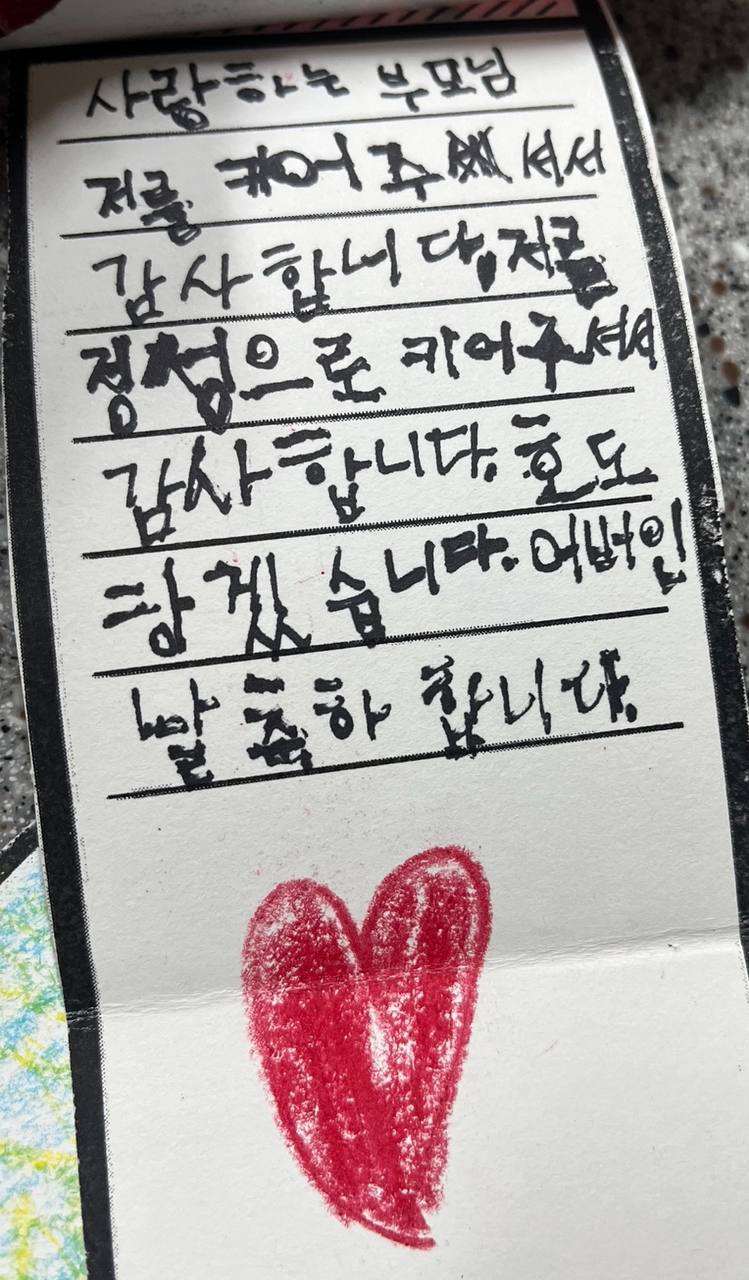 사랑하는 부모님
저를 키어 주셔서
감사합니다, 저를
정썽으로 키어주셔서
감사합니다. 호도
항겠습니다. 어버인
날 축하 합니다.